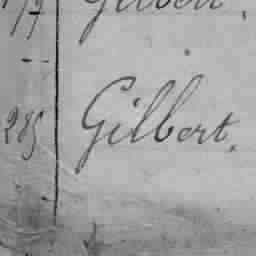 Gilbert,
285 Gilbert,